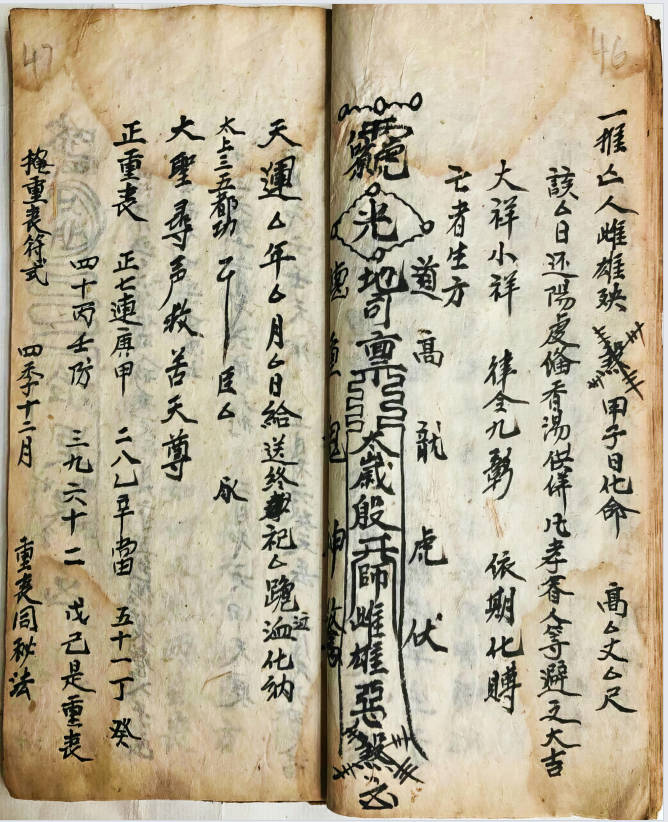 46
一推厶人雌雄殃煞 甲子日化命 高厶丈厶尺
該厶日还陽處俻香湯供俻凡孝眷人等避之大吉
大祥小祥 律令九 依期化賻
亡者生方
道高龍虎伏
光 地 稟 太歲殷元帥雌雄惡煞
德重鬼神
47
天運厶年厶月厶日給送終 祀厶跪 化納
太上三五都功 臣厶 承
大聖尋声救苦天尊
正重丧 正七連庚甲 二八乙辛當 五十一丁癸
四十丙壬防 三九六十二 戊己是重丧
掩重丧符式 四季十二月 重丧同秘法